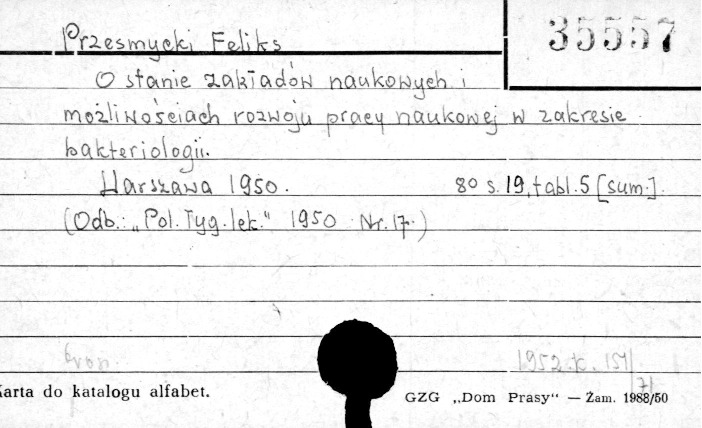 35557
Przesmycki Feliks
O stanie zakładów naukowych i
możliwościach rozwoju pracy naukowej w zakresie
bakteriologii.
Warszawa 1950. 8o s. 19, tabl. 5 [sum.].
(Odb.: „Pol. Tyg. lek." 1950 Nr. 17.)
1952.K. 151/
71
Karta do katalogu alfabet.
GZG „Dom Prasy“ — Zam. 1988/50